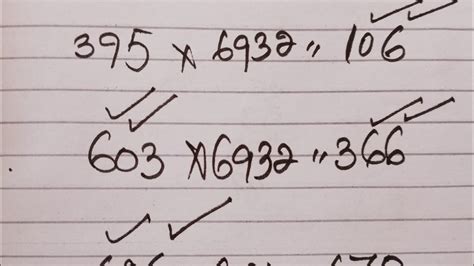 395 × 6932 " 106
603 × 6932 " 366